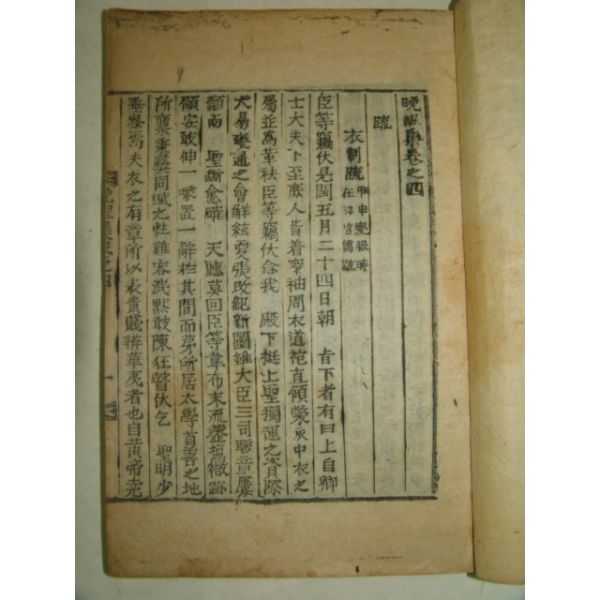 晩醒集卷之四
疏
衣制疏 甲申變服時
在泮홀儒疏
臣等竊伏見閏五月二十四日朝 旨下者有曰上自卿
士大夫下至庶人昔着窄袖周衣道袍直領氅衣中衣之
屬並爲革祛臣等竊伏念我 殿下挺上聖獨運之資際
大易變通之會解絃更張改紀新圖雖大臣三司聯章屢
籲而 聖斷愈確 天聽莫回臣等韋布末流螻蟻微跡
顧安敢伸一喙置一辭於其間而第所居太學首善之地
所稟秉彝同賦之性難容泯默敢陳狂瞽伏乞 聖明少
垂察焉夫衣之有章所以表貴賤辨華夷者也自黃帝堯